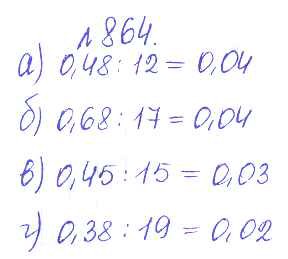 № 864.
а) 0,48 : 12 = 0,04
б) 0,68 : 17 = 0,04
в) 0,45 : 15 = 0,03
г) 0,38 : 19 = 0,02